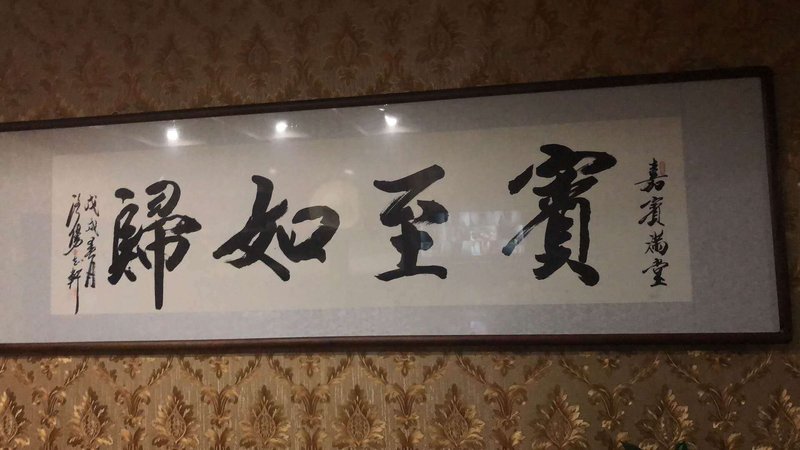 嘉賓滿堂
賓至如歸
戊戌春月